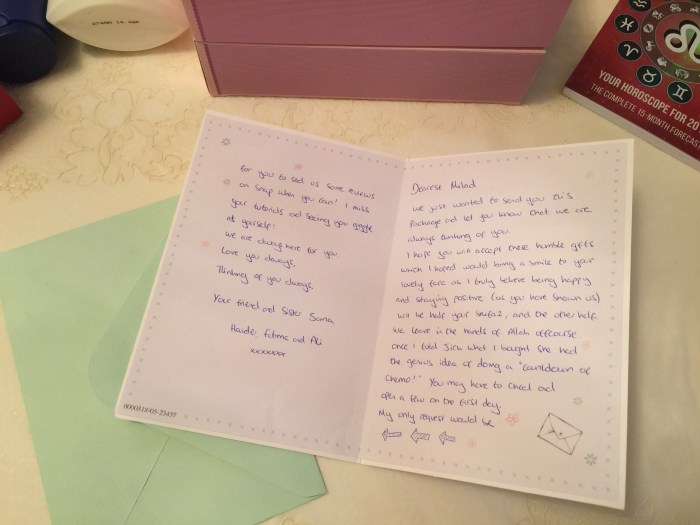 YOUR HOROSCOPE FOR 20
THE COMPLETE 15-MONTH FORECAS
Dearest Milad
we just wanted to send you this
Package and let you know that we are
always thinking of you.
I hope you will accept these humble gifts
which I hoped would bring a smile to your
lovely face as I truly believe being happy
and staying positive (as you have shown us)
will be half your and the other half
we leave in the hands of Allah offcourse
once I told what I bought she had
the genius idea of doing a "countdown of
chemo!" You may have to cheat and
open a few on the first day
My only request would be
for you to send us some reviews
on snap when you can! I miss
your tutorials and seeing you giggle
at yourself!
we are always here for you.
Love you always,
Thinking of you always,
Your friend and Sister
Haider, Fatima and Ali
xxxxxxx